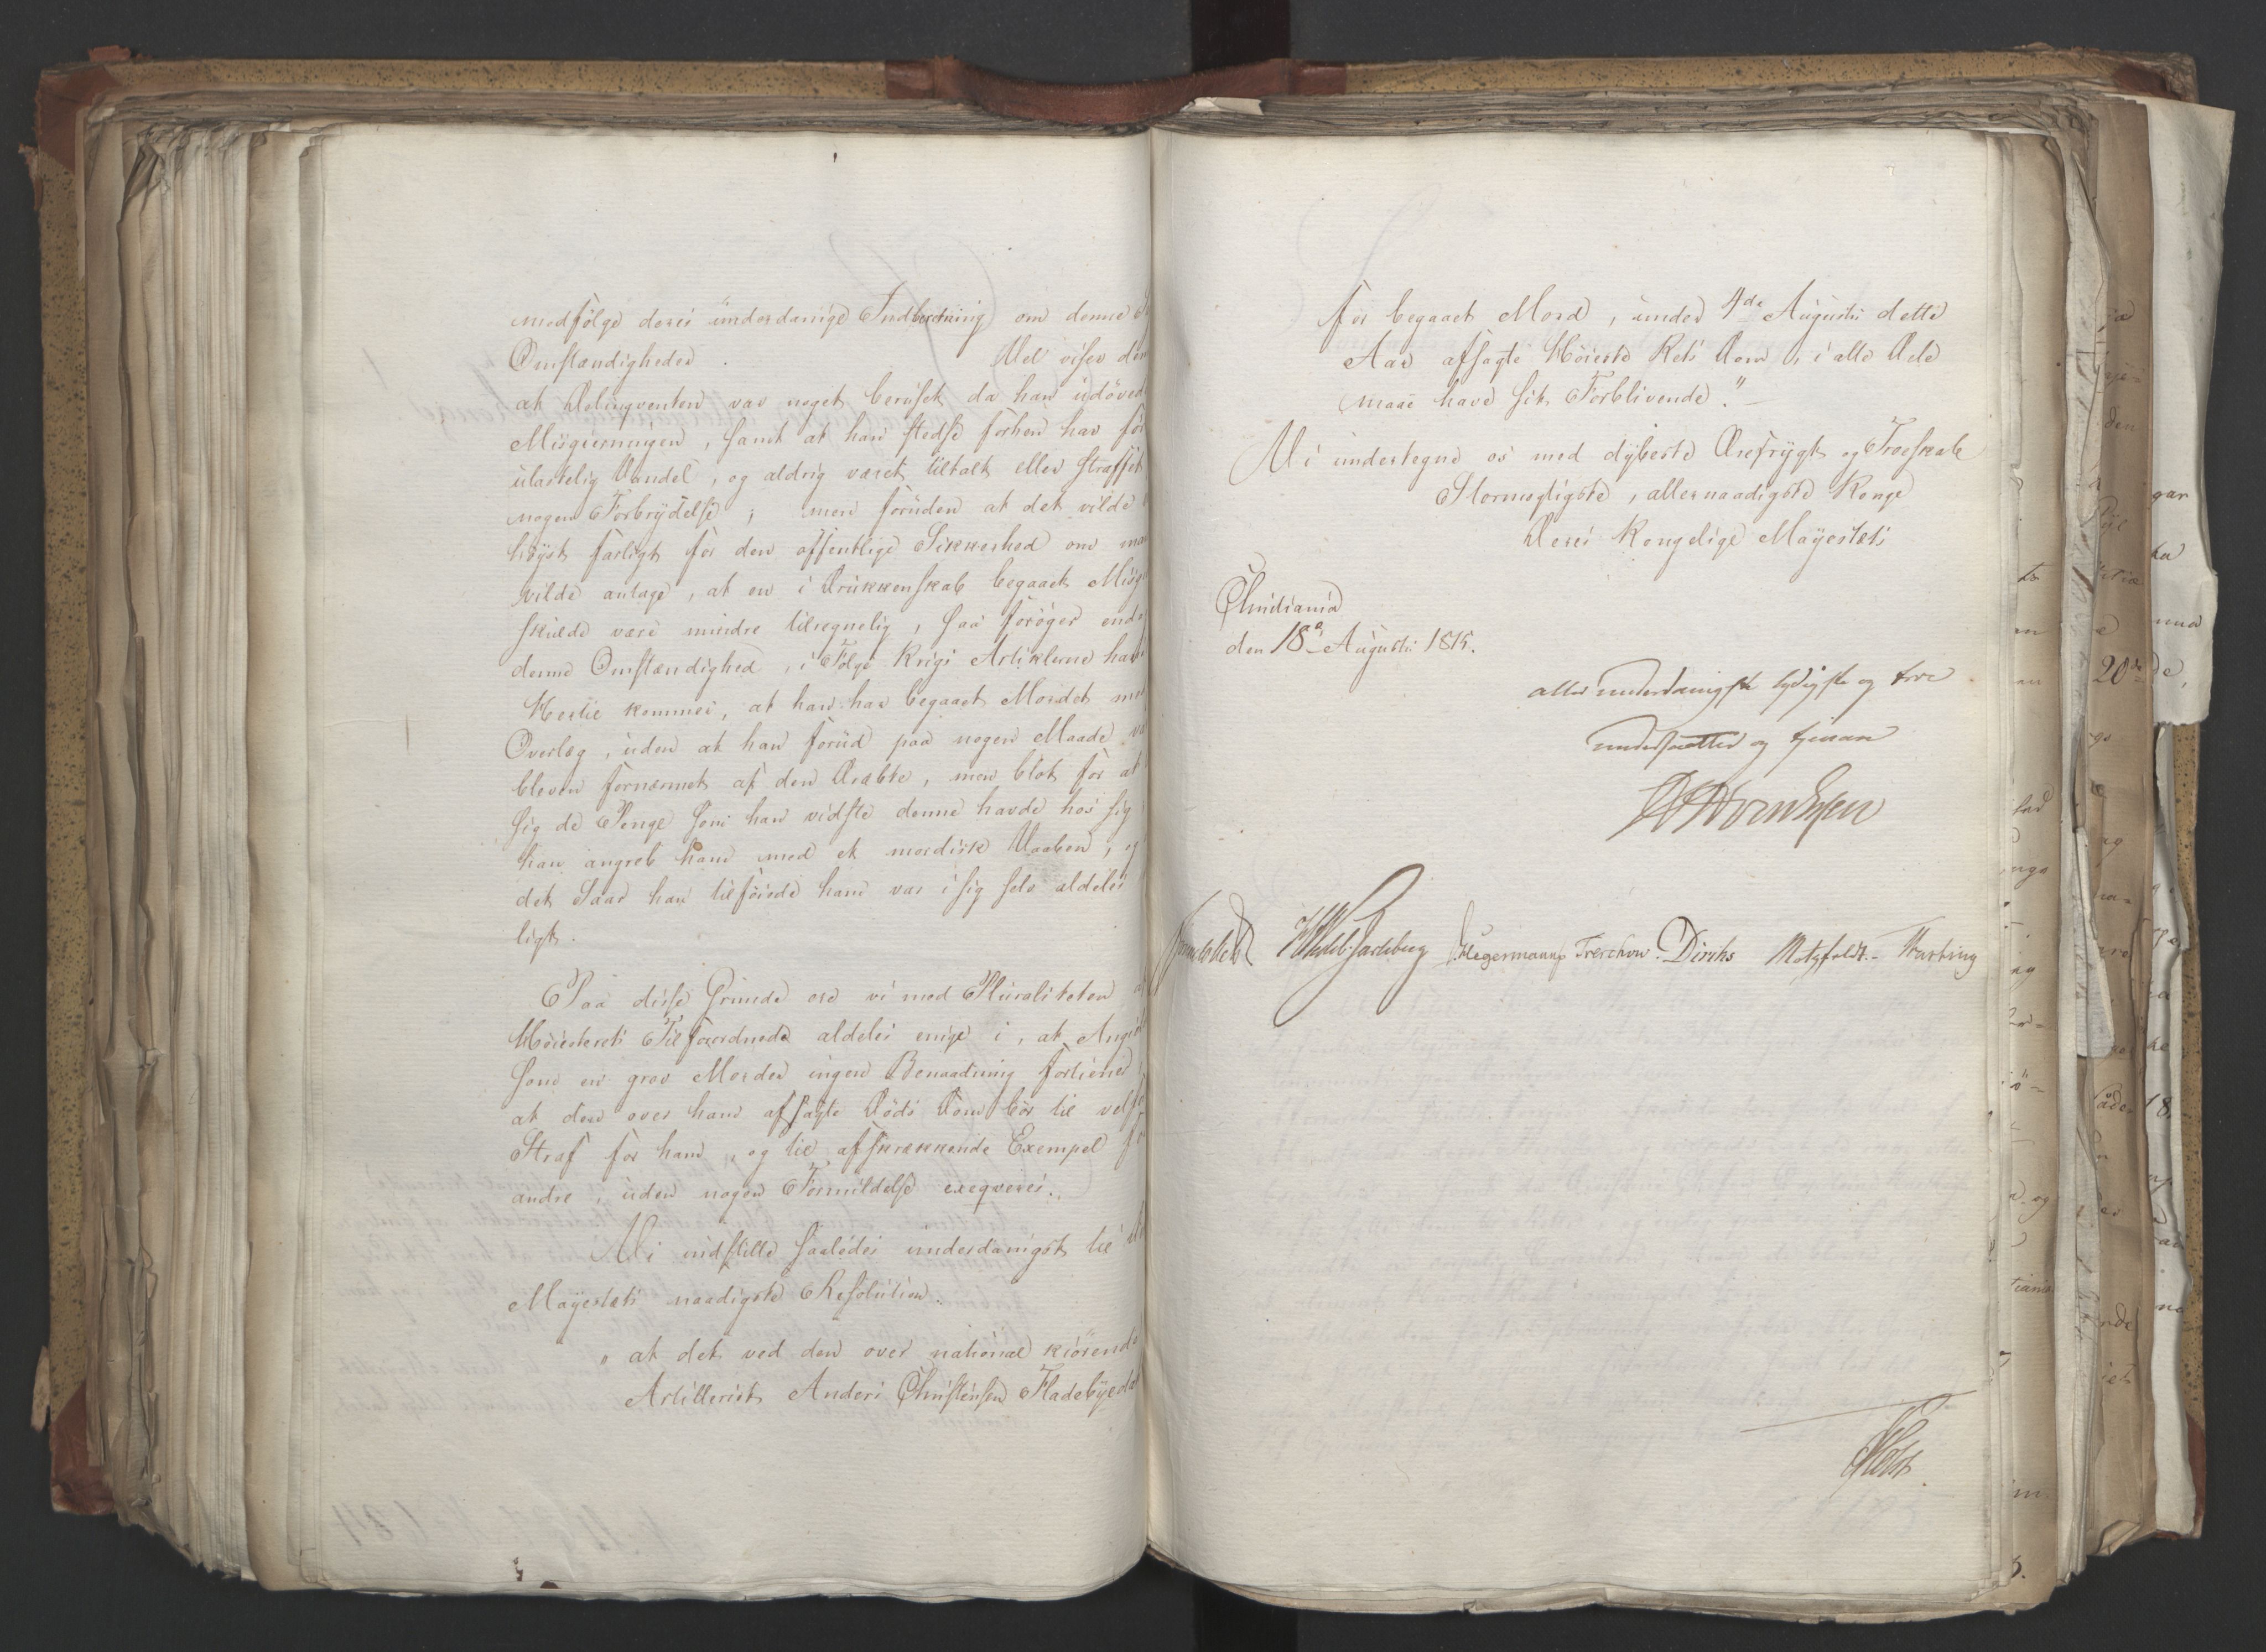 medfølge deres underdanige Indberetning om denne
Omstændigheder. Vel viser den
at Delinqventen var noget beruset da han udøved
Misgierningen, samt at han stedse forhen har før
ulastelig Vandel, og aldrig været tiltalt eller straffet
nogen Forbrydelse; men foruden at det vilde
høyst farligt for den offentlige Sikkerhed om man
vilde antage, at en i Drukkenskab begaaet Misg
skulde være mindre tilregnelig, saa forøger end
denne Omstændighed, i Følge Krigs Artiklerne hans
Hertil kommer, at han har begaaet Mordet med
Overlæg, uden at han forud paa nogen Maade va
bleven fornærmet af den Dræbte, men blot for at
sig de Penge som han vidste denne havde hos sig
han angreb ham med et mordisk Vaaben, og
det Saar han tilføiede ham var i sig selv aldeles
ligt.
Paa disse Grunde ere vi med Pluraliteten
Høiesterets Tilforordnede aldeles enige i, at Angi
som en grov Morder ingen Benaadning fortiener
at den over ham afsagte Døds Dom bør til velf
Straf for ham, og til afskrækkende Exempel for
andre, uden nogen Formildelse exeqveres.
Vi indstille saaledes underdanigst til
Mayestæts naadigste Resolution.
" at det ved den over national kiørende
Artillerist Anders Christensen Fladebye
for begaaet Mord, under 4de Augusti dette
Aar afsagte Høieste Rets Dom, i alle Dele
maae have sit Forblivende."
Vi undertegne os med dybeste Ærefrygt og Troeskab
Stormægtigste, allernaadigste Konge
Deres Kongelige Mayestæts
Christiania
den 18de Augusti 1815.
allerunderdanigste lydigste og troe
undersaatter og tjenere
Wedel Jarlsberg Hegermann Treschow. Diriks Motzfeldt. Hartvig
Holst.